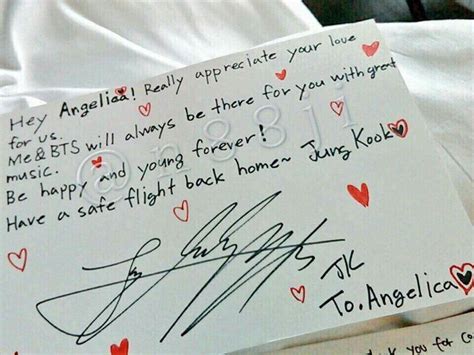 Hey Angelica! Really appreciate your love
for us.
Me & BTS will always be there for you with great
music.
Be happy and young forever!
Have a safe flight back home~ Jung Kook
JK
To. Angelica
@n88ji
k you for co